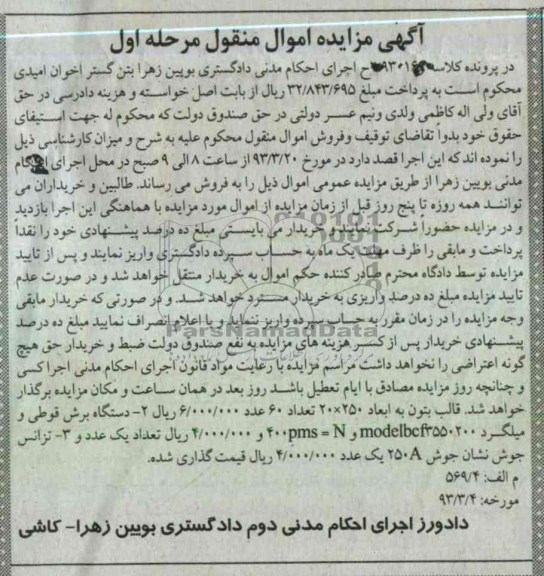 آگهی مزایده اموال منقول مرحله اول
در پرونده کلاسه ح اجرای احکام مدنی دادگستری بویین زهرا بتن گستر اخوان امیدی
محکوم است به پرداخت مبلغ ۳۲/۸۴۳/۶۹۵ ریال از بابت اصل خواسته و هزینه دادرسی در حق
آقای ولی اله کاظمی ولدی ونیم عسر دولتی در حق صندوق دولت که محکوم له جهت استیفای
حقوق خود بدواً تقاضای توقیف وفروش اموال منقول محکوم علیه به شرح و میزان کارشناسی ذیل
را نموده اند که این اجرا قصد دارد در مورخ ۹۳/۳/۲۰ از ساعت ۸ الی ۹ صبح در محل اجرای احکام
مدنی بویین زهرا از طریق مزایده عمومی اموال ذیل را به فروش می رساند. طالبین و خریداران می
توانند همه روزه تا پنج روز قبل از زمان مزایده از اموال مورد مزایده با هماهنگی این اجرا بازدید
و در مزایده حضوراً شرکت نمایند و خریدار می بایستی مبلغ ده درصد پیشنهادی خود را نقدا
پرداخت و مابقی را ظرف مهلت یک ماه به حساب سپرده دادگستری واریز نمایند و پس از تایید
مزایده توسط دادگاه محترم صادر کننده حکم اموال به خریدار منتقل خواهد شد و در صورت عدم
تایید مزایده مبلغ ده درصد واریزی به خریدار مسترد خواهد شد. و در صورتی که خریدار مابقی
وجه مزایده را در زمان مقرر به حساب سپرده واریز ننماید و یا اعلام انصراف نمایید مبلغ ده درصد
پیشنهادی خریدار پس از کسر هزینه های مزایده به نفع صندوق دولت ضبط و خریدار حق هیچ
گونه اعتراضی را نخواهد داشت مراسم مزایده با رعایت مواد قانون اجرای احکام مدنی اجرا کسی
و چنانچه روز مزایده مصادق با ایام تعطیل باشد روز بعد در همان ساعت و مکان مزایده برگذار
خواهد شد. قالب بتون به ابعاد ۲۵۰×۲۰ تعداد ۶۰ عدد ۶/۰۰۰/۰۰۰ ریال ۲- دستگاه برش قوطی و
میلگرد modelbcf۳۵۵۰۲۰۰ و ۴۰۰pms = N و ۴/۰۰۰/۰۰۰ ریال تعداد یک عدد و ۳- ترانس
جوش نشان جوش ۲۵۰A یک عدد ۴/۰۰۰/۰۰۰ ریال قیمت گذاری شده.
م الف: ۵۶۹/۴
مورخه: ۹۳/۳/۴
دادورز اجرای احکام مدنی دوم دادگستری بویین زهرا- کاشی
ParsNamadData